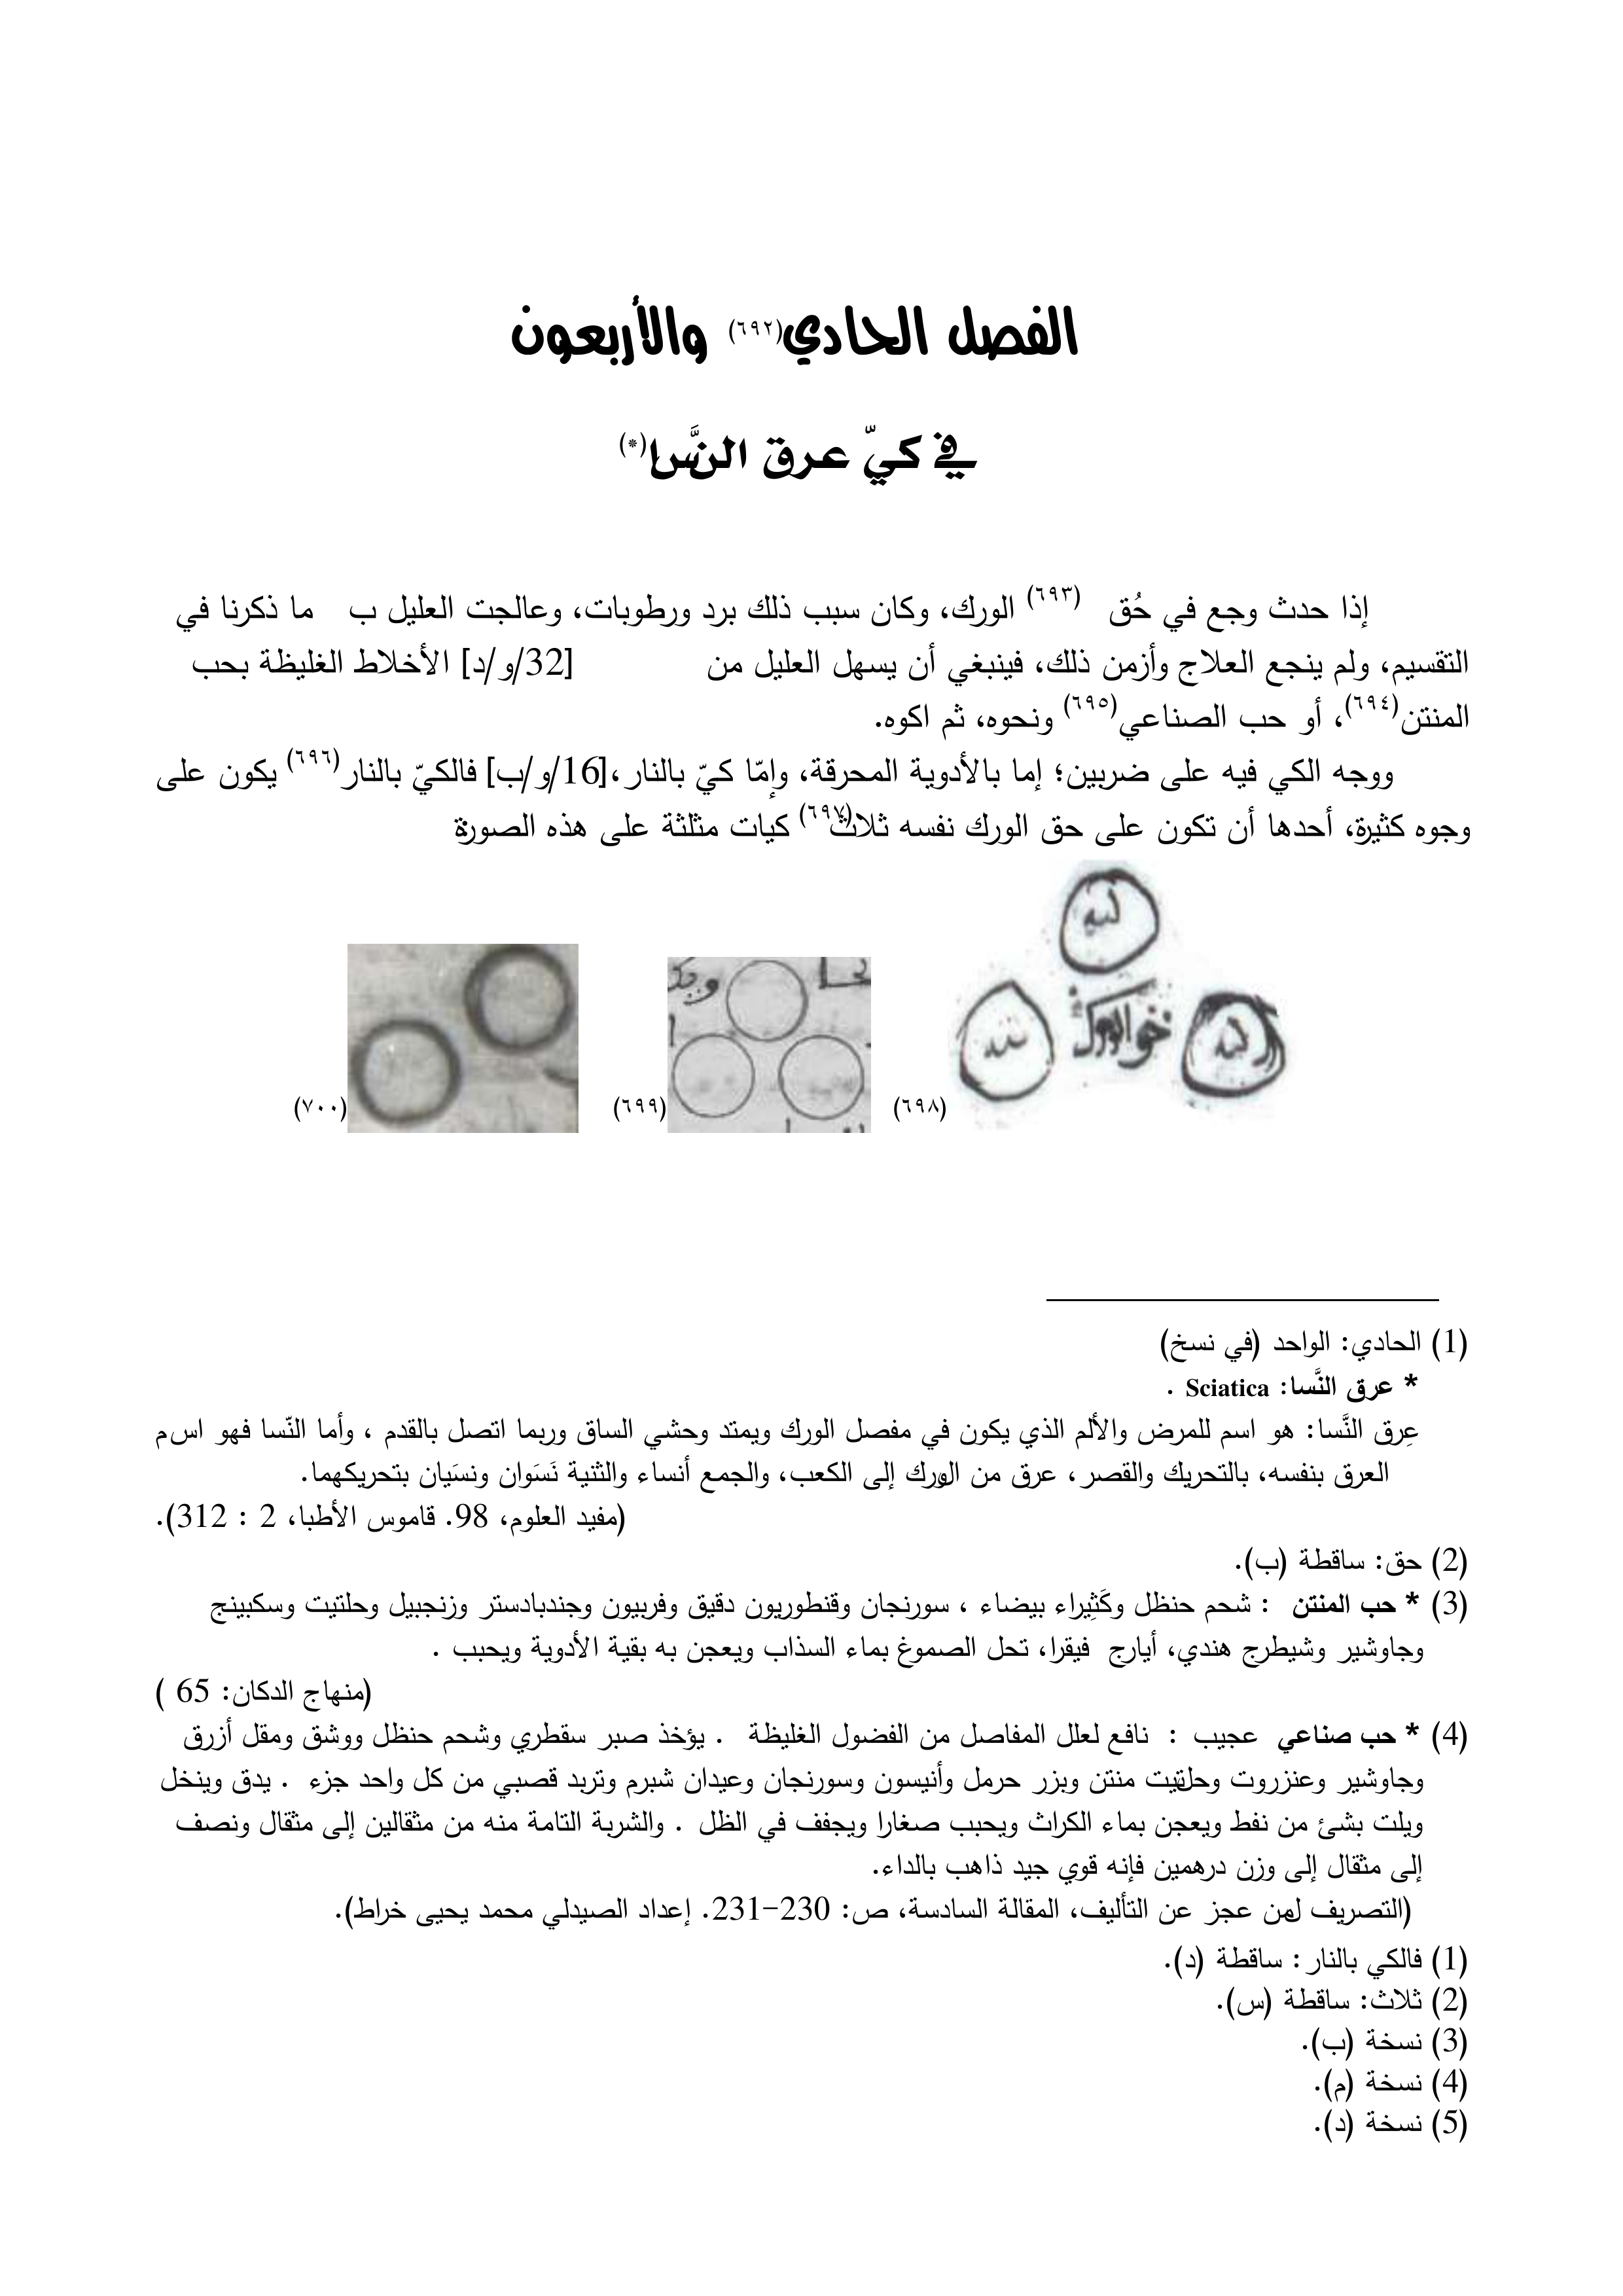 الفصل الحادي(٦٩٢) والأربعون
في كيّ عرق النَّسا(*)
إذا حدث وجع في حُق (٦٩٣) الورك، وكان سبب ذلك برد ورطوبات، وعالجت العليل ب ما ذكرنا في
التقسيم، ولم ينجع العلاج وأزمن ذلك، فينبغي أن يسهل العليل من [32/و/د] الأخلاط الغليظة بحب
المنتن(٦٩٤)، أو حب الصناعي(٦٩٥) ونحوه، ثم اكوه.
ووجه الكي فيه على ضربين؛ إما بالأدوية المحرقة، وإمّا كيّ بالنار،[16/و/ب] فالكيّ بالنار(٦٩٦) يكون على
وجوه كثيرة، أحدها أن تكون على حق الورك نفسه ثلاث(٦٩٧) كيات مثلثة على هذه الصورة
(٦٩٨) (٦٩٩) (٧٠٠)
(1) الحادي: الواحد (في نسخ)
* عرق النَّسا: Sciatica .
عِرق النَّسا: هو اسم للمرض والألم الذي يكون في مفصل الورك ويمتد وحشي الساق وربما اتصل بالقدم ، وأما النّسا فهو اسم
العرق بنفسه، بالتحريك والقصر، عرق من الورك إلى الكعب، والجمع أنساء والثنية نَسَوان ونسَيان بتحريكهما.
(مفيد العلوم، 98. قاموس الأطبا، 2 : 312).
(2) حق: ساقطة (ب).
(3) * حب المنتن : شحم حنظل وكَثِيراء بيضاء ، سورنجان وقنطوريون دقيق وفربيون وجندبادستر وزنجبيل وحلتيت وسكبينج
وجاوشير وشيطرج هندي، أيارج فيقرا، تحل الصموغ بماء السذاب ويعجن به بقية الأدوية ويحبب .
(منهاج الدكان: 65 )
(4) * حب صناعي عجيب : نافع لعلل المفاصل من الفضول الغليظة . يؤخذ صبر سقطري وشحم حنظل ووشق ومقل أزرق
وجاوشير وعنزروت وحلتيت منتن وبزر حرمل وأنيسون وسورنجان وعيدان شبرم وتربد قصبي من كل واحد جزء . يدق وينخل
ويلت بشئ من نفط ويعجن بماء الكراث ويحبب صغارا ويجفف في الظل . والشربة التامة منه من مثقالين إلى مثقال ونصف
إلى مثقال إلى وزن درهمين فإنه قوي جيد ذاهب بالداء.
(التصريف لمن عجز عن التأليف، المقالة السادسة، ص: 230-231. إعداد الصيدلي محمد يحيى خراط).
(1) فالكي بالنار: ساقطة (د).
(2) ثلاث: ساقطة (س).
(3) نسخة (ب).
(4) نسخة (م).
(5) نسخة (د).